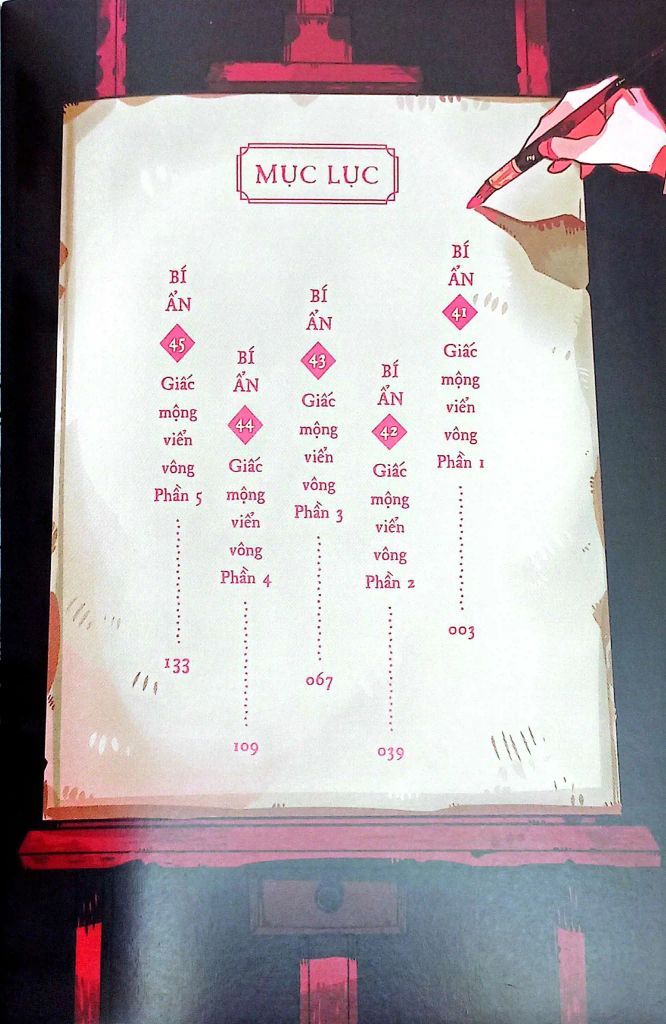 MỤC LỤC
BÍ
ẨN
41
Giấc
mộng
viển
vông
Phần 1
003
BÍ
ẨN
42
Giấc
mộng
viển
vông
Phần 2
039
BÍ
ẨN
43
Giấc
mộng
viển
vông
Phần 3
067
BÍ
ẨN
44
Giấc
mộng
viển
vông
Phần 4
109
BÍ
ẨN
45
Giấc
mộng
viển
vông
Phần 5
133